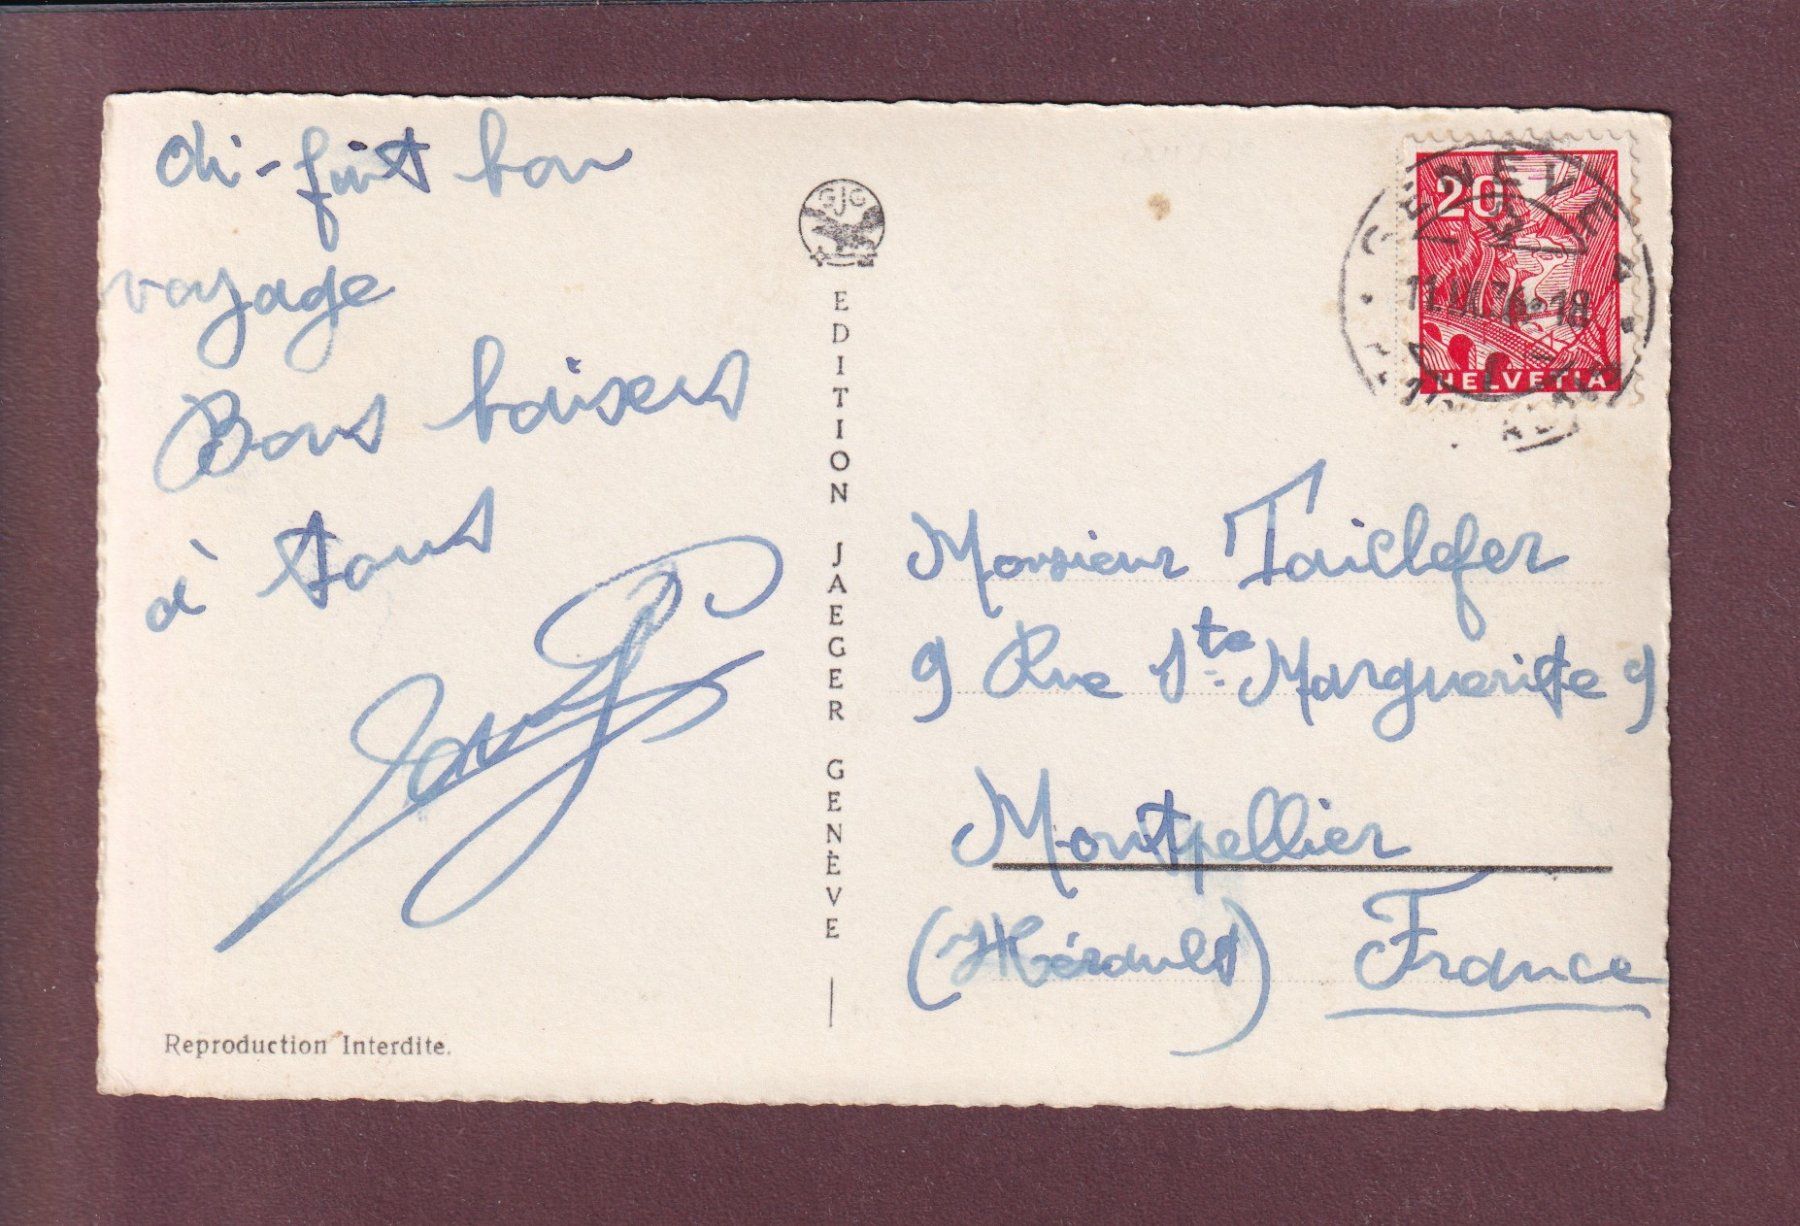 fait bon
voyage
Bons baisers
à tous
GJG
EDITION JAEGER GENÈVE
Reproduction Interdite.
20
HELVETIA
GENÈVE
18
Monsieur Taillefer
9 Rue Ste Marguerite 9
Montpellier
(Hérault) France